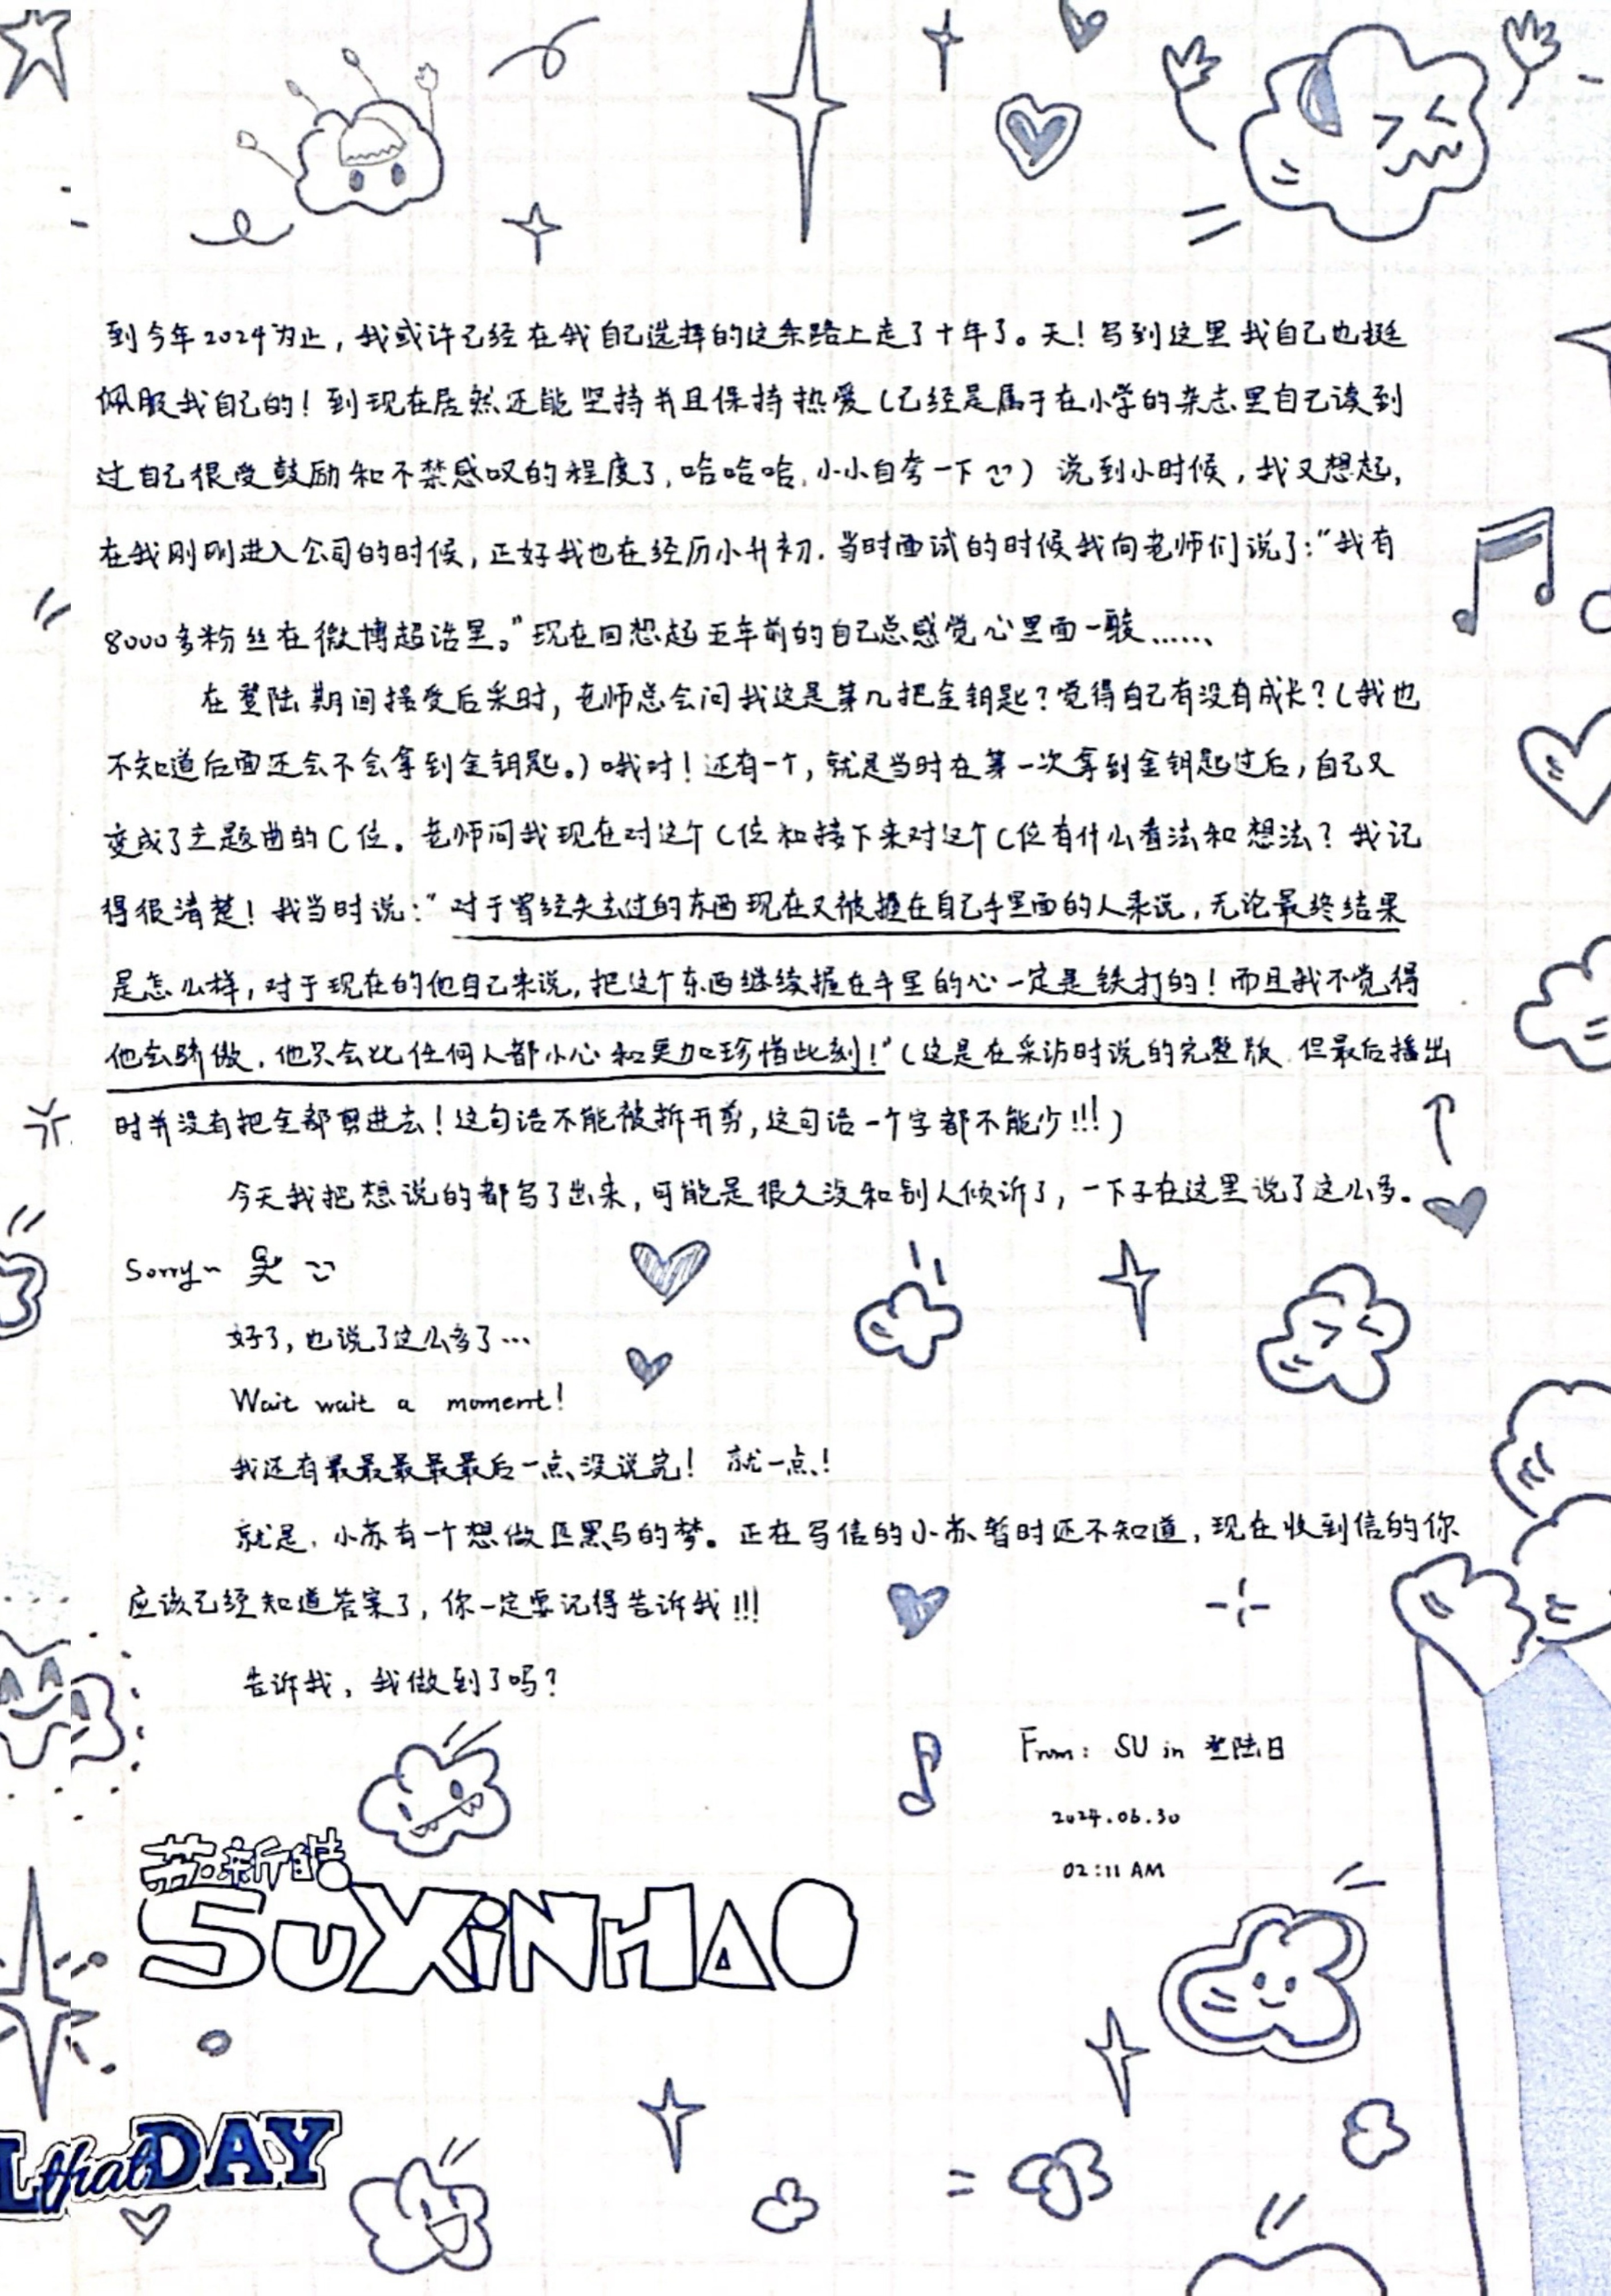 到今年2024为止，我或许已经在我自己选择的这条路上走了十年了。天！写到这里我自己也挺
佩服我自己的！到现在居然还能坚持并且保持热爱（已经是属于在小学的杂志里自己读到
过自己很受鼓励和不禁感叹的程度了，哈哈哈，小小自夸一下）说到小时候，我又想起，
在我刚刚进入公司的时候，正好我也在经历小升初．当时面试的时候我向老师们说了：“我有
8000多粉丝在微博超话里。”现在回想起五年前的自己总感觉心里面一酸……、
在登陆期间接受后采时，老师总会问我这是第几把金钥匙？觉得自己有没有成长？（我也
不知道后面还会不会拿到金钥匙。）哦对！还有一个，就是当时在第一次拿到金钥匙过后，自己又
变成了主题曲的C位。老师问我现在对这个C位和接下来对这个C位有什么看法和想法？我记
得很清楚！我当时说：“对于曾经失去过的东西现在又被握在自己手里面的人来说，无论最终结果
是怎么样，对于现在的他自己来说，把这个东西继续握在手里的心一定是铁打的！而且我不觉得
他会骄傲．他只会比任何人都小心和更加珍惜此刻！”（这是在采访时说的完整版．但最后播出
时并没有把全部剪进去！这句话不能被拆开剪，这句话一个字都不能少!!!）
今天我把想说的都写了出来，可能是很久没和别人倾诉了，一下子在这里说了这么多。
Sorry~ 哭
好了，也说了这么多了…
Wait wait a moment!
我还有最最最最最后一点没说完！ 就一点！
就是．小苏有一个想做匹黑马的梦。正在写信的小苏暂时还不知道，现在收到信的你
应该已经知道答案了，你一定要记得告诉我!!!
告诉我，我做到了吗？
From: SU in 登陆日
2024.06.30
02:11 AM
苏新皓
SUXiNHAO
L that DAY